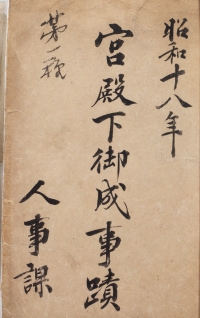 昭和十八年
宮殿下御成事蹟
第一號
人事課